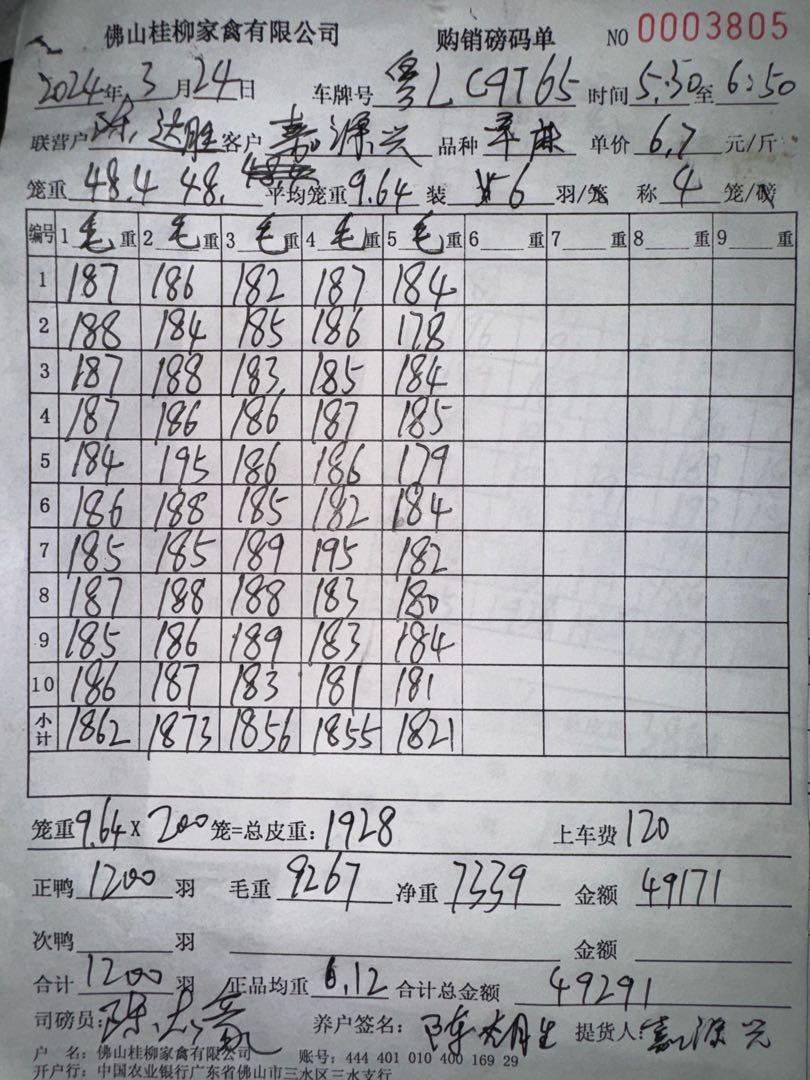 佛山桂柳家禽有限公司 购销磅码单 NO 0003805
2024年 3 月 24 日 车牌号 粤L C9T65 时间 5:30 至 6:50
联营户 陈达胜 客户 嘉源兴 品种 单价 6.7 元/斤
笼重 48.4 48. 平均笼重 9.64 装 6 羽/笼 称 4 笼/磅
编号 1 毛 重 2 毛 重 3 毛 重 4 毛 重 5 毛 重 6 重 7 重 8 重 9 重
1 187 186 182 187 184
2 188 184 185 186 178
3 187 188 183 185 184
4 187 186 186 187 185
5 184 195 186 186 179
6 186 188 185 182 184
7 185 185 189 195 182
8 187 188 188 183 180
9 185 186 189 183 184
10 186 187 183 181 181
小计 1862 1873 1856 1855 1821
笼重 9.64 X 200 笼=总皮重: 1928 上车费 120
正鸭 1200 羽 毛重 9267 净重 7339 金额 49171
次鸭 羽 金额
合计 1200 羽 正品均重 6.12 合计总金额 49291
司磅员: 养户签名: 陈达胜 提货人: 嘉源兴
户 名: 佛山桂柳家禽有限公司 账号: 444 401 010 400 169 29
开户行: 中国农业银行广东省佛山市三水区三水支行